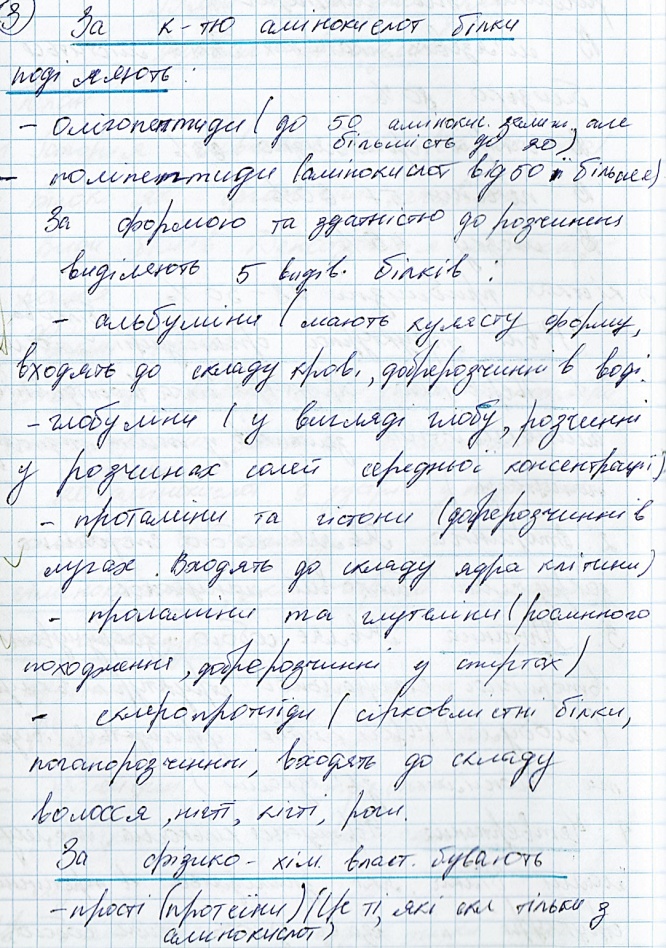 3
За к-тю амінокислот білки
поділяють :
- Олігопептиди (до 50 амінокис. залиш., але
більшість до 20)
- поліпептиди (амінокислот від 50 і більше)
За формою та здатністю до розчинення
виділяють 5 видів. білків :
- альбуміни (мають кулясту форму,
входять до складу крові, добререзчинні в воді.
- глобуліни (у вигляді глобу, розчинні
у розчинах солей середньої концентрації)
- протаміни та гістони (добророзчинні в
лугах. Входять до складу ядра клітини)
- проламіни та глутеліни (рослинного
походження, добророзчинні у спиртах)
- склеропротеїди (сірковмістні білки,
поганорозчинні, входять до складу
волосся, нігті, кігті, роги.
За фізико-хім. власт. бувають
- прості (протеїни) (це ті, які скл тільки з
амінокислот)